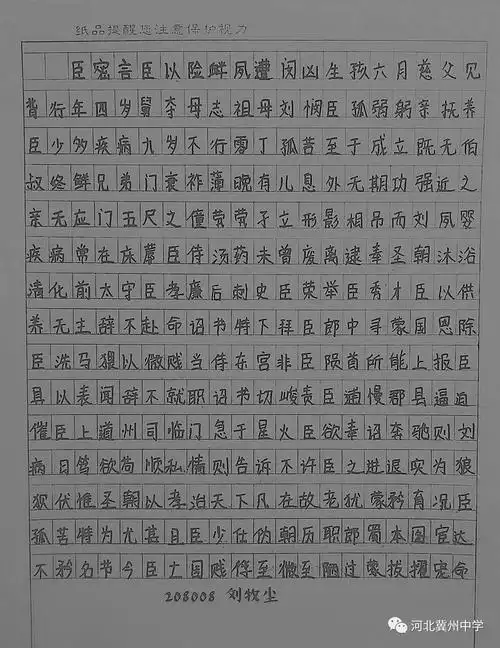 纸品提醒您注意保护视力
臣密言臣以险衅夙遭闵凶生孩六月慈父见
背行年四岁舅李母志祖母刘悯臣孤弱躬亲抚养
臣少多疾病九岁不行零丁孤苦至于成立既无伯
叔终鲜兄弟门衰祚薄晚有儿息外无期功强近之
亲无应门五尺之僮茕茕孑立形影相吊而刘夙婴
疾病常在床蓐臣侍汤药未曾废离逮奉圣朝沐浴
清化前太守臣孝廉后刺史臣荣举臣秀才臣以供
养无主辞不赴命诏书特下拜臣郎中寻蒙国恩除
臣洗马猥以微贱当侍东宫非臣陨首所能上报臣
具以表闻辞不就职诏书切峻责臣逋慢郡县逼迫
催臣上道州司临门急于星火臣欲奉诏奔驰则刘
病日笃欲苟顺私情则告诉不许臣之进退实为狼
狈伏惟圣朝以孝治天下凡在故老犹蒙矜育况臣
孤苦特为尤甚且臣少仕伪朝历职郎署本图宦达
不矜名节今臣亡国贱俘至微至陋过蒙拔擢宠命
208008 刘牧尘
河北冀州中学